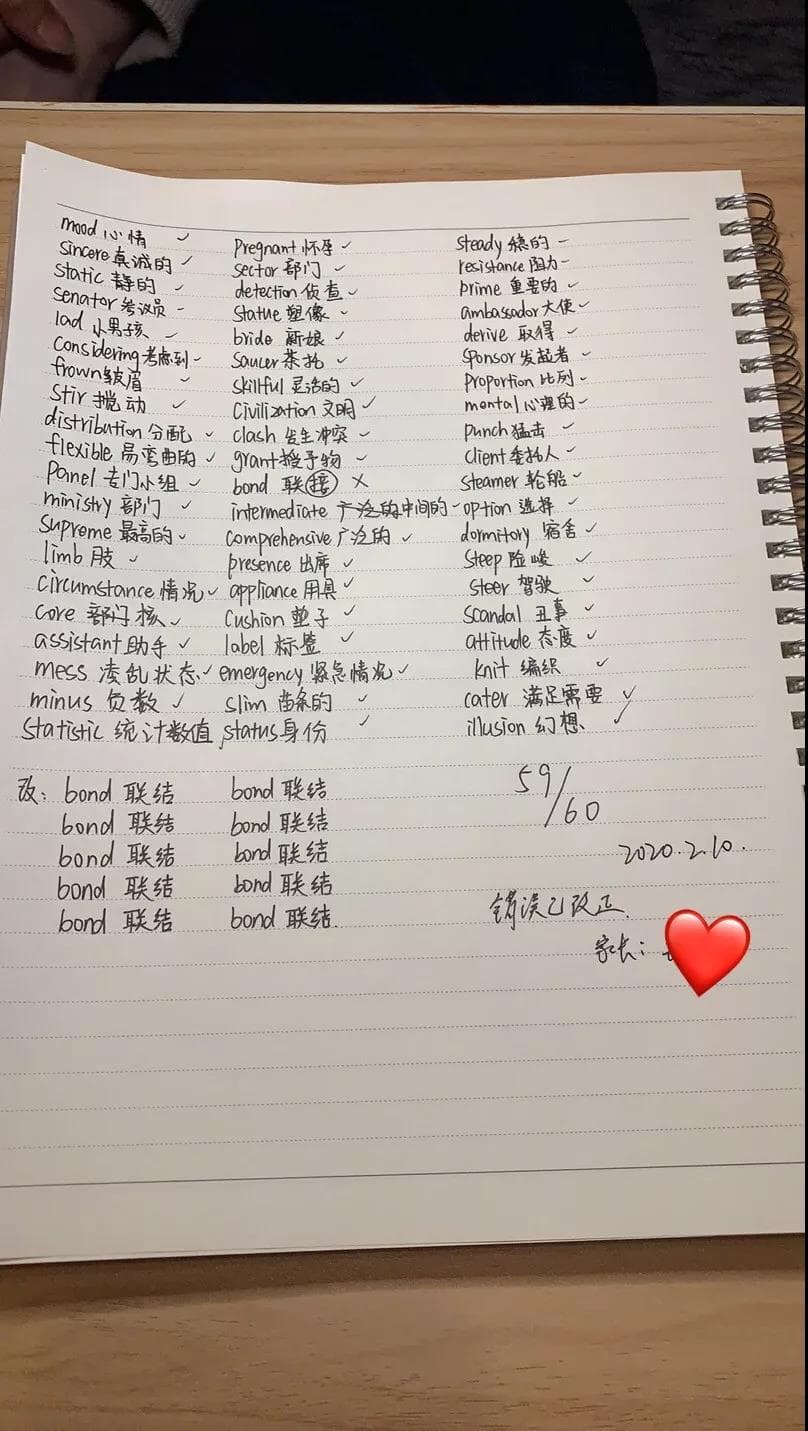 mood 心情 ✓
sincere 真诚的 ✓
static 静的 ✓
senator 参议员 ✓
lad 小男孩 ✓
considering 考虑到 ✓
frown 皱眉 ✓
stir 搅动 ✓
distribution 分配 ✓
flexible 易弯曲的 ✓
panel 专门小组 ✓
ministry 部门 ✓
supreme 最高的 ✓
limb 肢 ✓
circumstance 情况 ✓
core 部门核 ✓
assistant 助手 ✓
mess 凌乱状态 ✓
minus 负数 ✓
statistic 统计数值
pregnant 怀孕 ✓
sector 部门 ✓
detection 侦查 ✓
statue 塑像 ✓
bride 新娘 ✓
saucer 茶托 ✓
skillful 灵活的 ✓
civilization 文明 ✓
clash 发生冲突 ✓
grant 授予物 ✓
bond 联接 ×
intermediate 广泛的中间的 ✓
comprehensive 广泛的 ✓
presence 出席 ✓
appliance 用具 ✓
cushion 垫子 ✓
label 标签 ✓
emergency 紧急情况 ✓
slim 苗条的 ✓
status 身份 ✓
steady 稳的 ✓
resistance 阻力 ✓
prime 重要的 ✓
ambassador 大使 ✓
derive 取得 ✓
sponsor 发起者 ✓
proportion 比列 ✓
mental 心理的 ✓
punch 猛击 ✓
client 委托人 ✓
steamer 轮船 ✓
option 选择 ✓
dormitory 宿舍 ✓
steep 险峻 ✓
steer 驾驶 ✓
scandal 丑事 ✓
attitude 态度 ✓
knit 编织 ✓
cater 满足需要 ✓
illusion 幻想 ✓
改: bond 联结 bond 联结
bond 联结 bond 联结
bond 联结 bond 联结
bond 联结 bond 联结
bond 联结 bond 联结.
59/60
2020.2.10.
错误已改正.
家长: